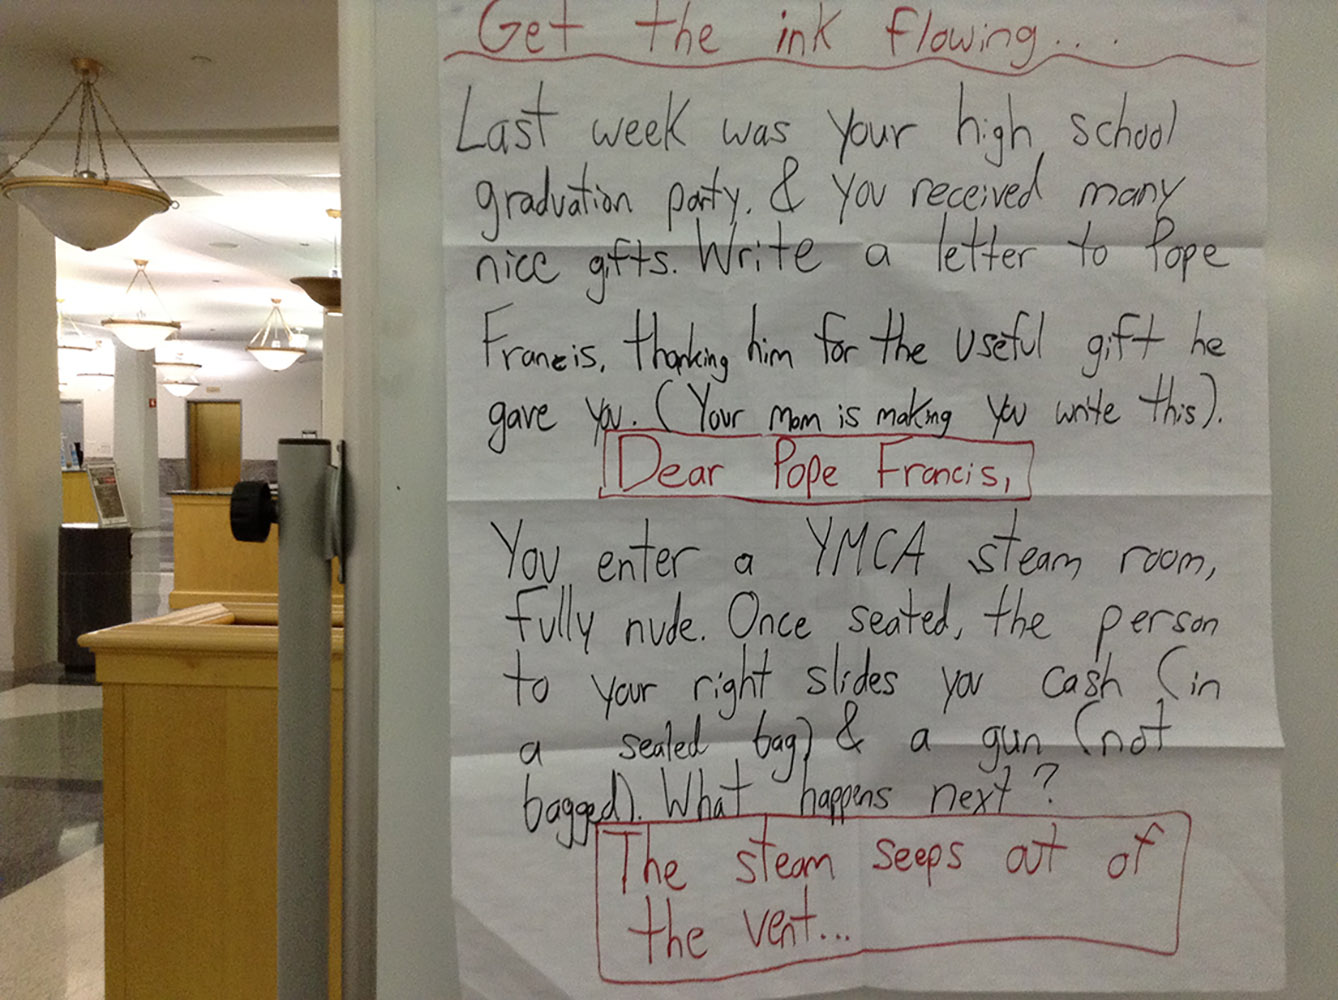 Get the ink flowing...
Last week was your high school
graduation party, & you received many
nice gifts. Write a letter to Pope
Francis, thanking him for the useful gift he
gave you. (Your mom is making you write this).
Dear Pope Francis,
You enter a YMCA steam room,
fully nude. Once seated, the person
to your right slides you cash (in
a sealed bag) & a gun (not
bagged). What happens next?
The steam seeps out of
the vent...